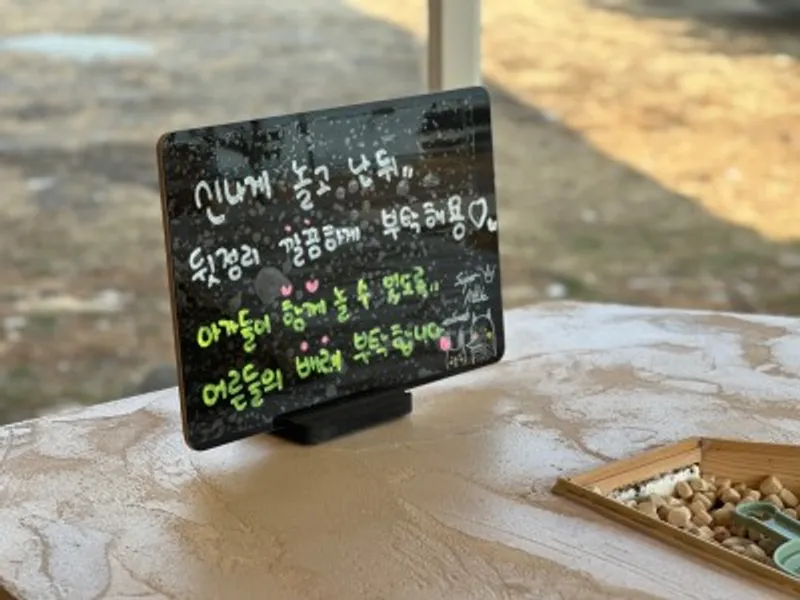 신나게 놀고 난 뒤,,
뒷정리 깔끔하게 부탁해용♡
아가들이 함께 놀 수 있도록,,
어른들의 배려 부탁합니다